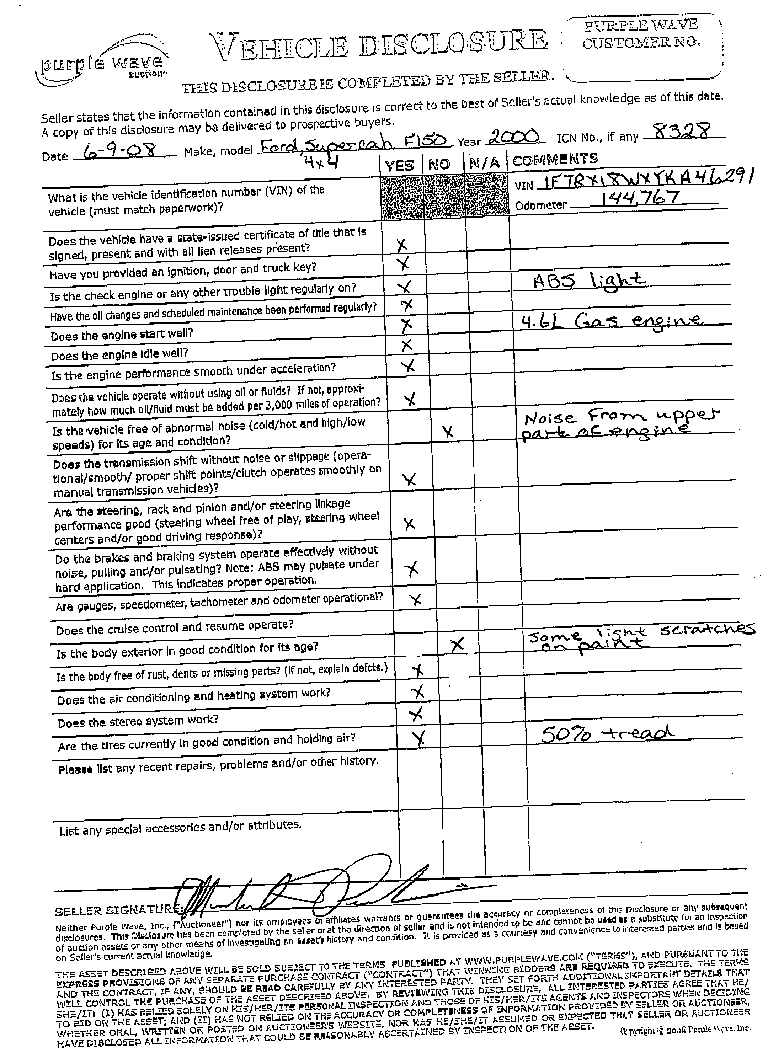 purple wave
auction
VEHICLE DISCLOSURE
PURPLE WAVE
CUSTOMER NO.
THIS DISCLOSURE IS COMPLETED BY THE SELLER.
Seller states that the information contained in this disclosure is correct to the best of Seller's actual knowledge as of this date.
A copy of this disclosure may be delivered to prospective buyers.
Date 6-9-08 Make, model Ford, Supercab F150 Year 2000 ICN No., if any 8328
4x4
YES NO N/A COMMENTS
What is the vehicle identification number (VIN) of the
vehicle (must match paperwork)?
VIN 1FTRX18WXYKA46291
Odometer 144,767
Does the vehicle have a state-issued certificate of title that is
signed, present and with all lien releases present? X
Have you provided an ignition, door and truck key? X
Is the check engine or any other trouble light regularly on? X ABS light
Have the oil changes and scheduled maintenance been performed regularly? X
Does the engine start well? X 4.6L Gas engine
Does the engine idle well? X
Is the engine performance smooth under acceleration? X
Does the vehicle operate without using oil or fluids? If not, approxi-
mately how much oil/fluid must be added per 3,000 miles of operation? X
Is the vehicle free of abnormal noise (cold/hot and high/low
speeds) for its age and condition? X
Noise from upper
part of engine
Does the transmission shift without noise or slippage (opera-
tional/smooth/ proper shift points/clutch operates smoothly on
manual transmission vehicles)? X
Are the steering, rack and pinion and/or steering linkage
performance good (steering wheel free of play, steering wheel
centers and/or good driving response)? X
Do the brakes and braking system operate effectively without
noise, pulling and/or pulsating? Note: ABS may pulsate under
hard application. This indicates proper operation. X
Are gauges, speedometer, tachometer and odometer operational? X
Does the cruise control and resume operate?
Is the body exterior in good condition for its age? X
Some light scratches
on paint
Is the body free of rust, dents or missing parts? (If not, explain defcts.) X
Does the air conditioning and heating system work? X
Does the stereo system work? X
Are the tires currently in good condition and holding air? X 50% tread
Please list any recent repairs, problems and/or other history.
List any special accessories and/or attributes.
SELLER SIGNATURE
Neither Purple Wave, Inc., ("Auctioneer") nor its employees or affiliates warrants or guarantees the accuracy or completeness of this Disclosure or any subsequent
disclosures. This disclosure has been completed by the seller or at the direction of seller and is not intended to be and cannot be used as a substitute for an inspection
of auction assets or any other means of investigating an asset's history and condition. It is provided as a courtesy and convenience to interested parties and is based
on Seller's current actual knowledge.
THE ASSET DESCRIBED ABOVE WILL BE SOLD SUBJECT TO THE TERMS PUBLISHED AT WWW.PURPLEWAVE.COM ("TERMS"), AND PURSUANT TO THE
EXPRESS PROVISIONS OF ANY SEPARATE PURCHASE CONTRACT ("CONTRACT") THAT WINNING BIDDERS ARE REQUIRED TO EXECUTE. THE TERMS
AND THE CONTRACT, IF ANY, SHOULD BE READ CAREFULLY BY ANY INTERESTED PARTY. THEY SET FORTH ADDITIONAL IMPORTANT DETAILS THAT
WILL CONTROL THE PURCHASE OF THE ASSET DESCRIBED ABOVE. BY REVIEWING THIS DISCLOSURE, ALL INTERESTED PARTIES AGREE THAT HE/
SHE/IT: (I) HAS RELIED SOLELY ON HIS/HER/ITS PERSONAL INSPECTION AND THOSE OF HIS/HER/ITS AGENTS AND INSPECTORS WHEN DECIDING
TO BID ON THE ASSET; AND (II) HAS NOT RELIED ON THE ACCURACY OR COMPLETENESS OF INFORMATION PROVIDED BY SELLER OR AUCTIONEER,
WHETHER ORAL, WRITTEN OR POSTED ON AUCTIONEER'S WEBSITE, NOR HAS HE/SHE/IT ASSUMED OR EXPECTED THAT SELLER OR AUCTIONEER
HAVE DISCLOSED ALL INFORMATION THAT COULD BE REASONABLY ASCERTAINED BY INSPECTION OF THE ASSET.
Copyright © 2008 Purple Wave, Inc.